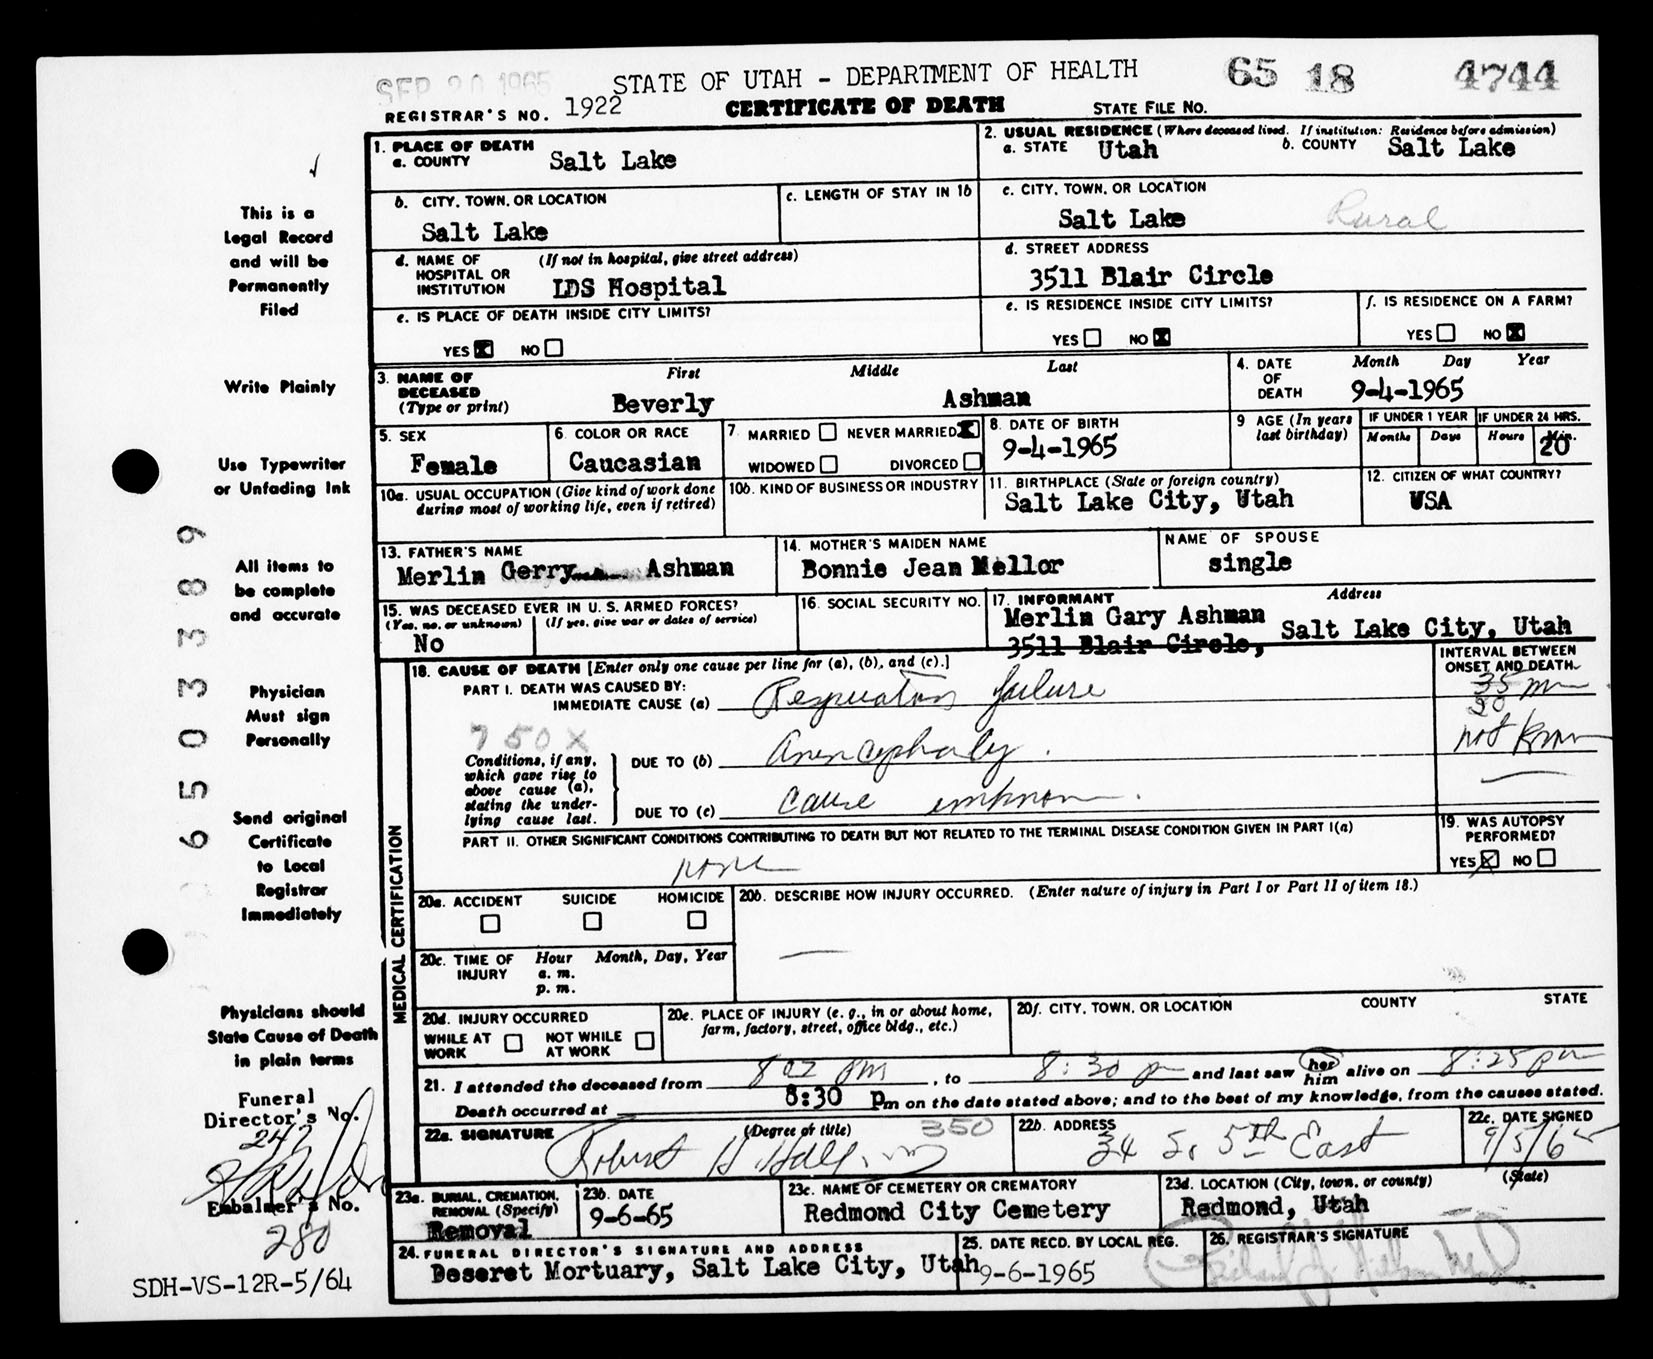 SEP 20 1965
STATE OF UTAH - DEPARTMENT OF HEALTH
65 18 4744
REGISTRAR'S NO. 1922
CERTIFICATE OF DEATH
STATE FILE NO.
1. PLACE OF DEATH
a. COUNTY Salt Lake
2. USUAL RESIDENCE (Where deceased lived. If institution: Residence before admission)
a. STATE Utah b. COUNTY Salt Lake
b. CITY, TOWN, OR LOCATION
Salt Lake
c. LENGTH OF STAY IN 1b
c. CITY, TOWN, OR LOCATION
Salt Lake Rural
d. NAME OF HOSPITAL OR INSTITUTION (If not in hospital, give street address)
LDS Hospital
d. STREET ADDRESS
3511 Blair Circle
e. IS PLACE OF DEATH INSIDE CITY LIMITS?
YES NO
e. IS RESIDENCE INSIDE CITY LIMITS?
YES NO
f. IS RESIDENCE ON A FARM?
YES NO
3. NAME OF DECEASED (Type or print)
First Middle Last
Beverly Ashman
4. DATE OF DEATH Month Day Year
9-4-1965
5. SEX
Female
6. COLOR OR RACE
Caucasian
7. MARRIED NEVER MARRIED
WIDOWED DIVORCED
8. DATE OF BIRTH
9-4-1965
9 AGE (In years last birthday)
IF UNDER 1 YEAR
Months Days
IF UNDER 24 HRS.
Hours Min.
20
10a. USUAL OCCUPATION (Give kind of work done during most of working life, even if retired)
10b. KIND OF BUSINESS OR INDUSTRY
11. BIRTHPLACE (State or foreign country)
Salt Lake City, Utah
12. CITIZEN OF WHAT COUNTRY?
USA
13. FATHER'S NAME
Merlin Gerry Ashman
14. MOTHER'S MAIDEN NAME
Bonnie Jean Mellor
NAME OF SPOUSE
single
15. WAS DECEASED EVER IN U. S. ARMED FORCES?
(Yes, no, or unknown) (If yes, give war or dates of service)
No
16. SOCIAL SECURITY NO.
17. INFORMANT Address
Merlin Gary Ashman
3511 Blair Circle, Salt Lake City, Utah
18. CAUSE OF DEATH [Enter only one cause per line for (a), (b), and (c).]
INTERVAL BETWEEN ONSET AND DEATH
PART I. DEATH WAS CAUSED BY:
IMMEDIATE CAUSE (a) Respiratory failure
35 m
20
750X
Conditions, if any, which gave rise to above cause (a), stating the underlying cause last.
DUE TO (b) Anencephaly.
not known
DUE TO (c) cause unknown.
PART II. OTHER SIGNIFICANT CONDITIONS CONTRIBUTING TO DEATH BUT NOT RELATED TO THE TERMINAL DISEASE CONDITION GIVEN IN PART I(a)
none
19. WAS AUTOPSY PERFORMED?
YES NO
MEDICAL CERTIFICATION
20a. ACCIDENT SUICIDE HOMICIDE
20b. DESCRIBE HOW INJURY OCCURRED. (Enter nature of injury in Part I or Part II of item 18.)
20c. TIME OF INJURY Hour Month, Day, Year
a. m.
p. m.
20d. INJURY OCCURRED
WHILE AT WORK NOT WHILE AT WORK
20e. PLACE OF INJURY (e. g., in or about home, farm, factory, street, office bldg., etc.)
20f. CITY, TOWN, OR LOCATION COUNTY STATE
21. I attended the deceased from 802 pm, to 8:30 pm and last saw her him alive on 8:25 pm
Death occurred at 8:30 Pm on the date stated above; and to the best of my knowledge, from the causes stated.
22a. SIGNATURE (Degree or title) 350
Robert H.
22b. ADDRESS
34 S. 5th East
22c. DATE SIGNED
9/5/65
23a. BURIAL, CREMATION, REMOVAL (Specify)
Removal
23b. DATE
9-6-65
23c. NAME OF CEMETERY OR CREMATORY
Redmond City Cemetery
23d. LOCATION (City, town, or county) (State)
Redmond, Utah
24. FUNERAL DIRECTOR'S SIGNATURE AND ADDRESS
Deseret Mortuary, Salt Lake City, Utah
25. DATE RECD. BY LOCAL REG.
9-6-1965
26. REGISTRAR'S SIGNATURE
This is a
Legal Record
and will be
Permanently
Filed
Write Plainly
Use Typewriter
or Unfading Ink
All items to
be complete
and accurate
Physician
Must sign
Personally
Send original
Certificate
to Local
Registrar
Immediately
Physicians should
State Cause of Death
in plain terms
Funeral
Director's No.
Embalmer's No.
280
SDH-VS-12R-5/64
6503389